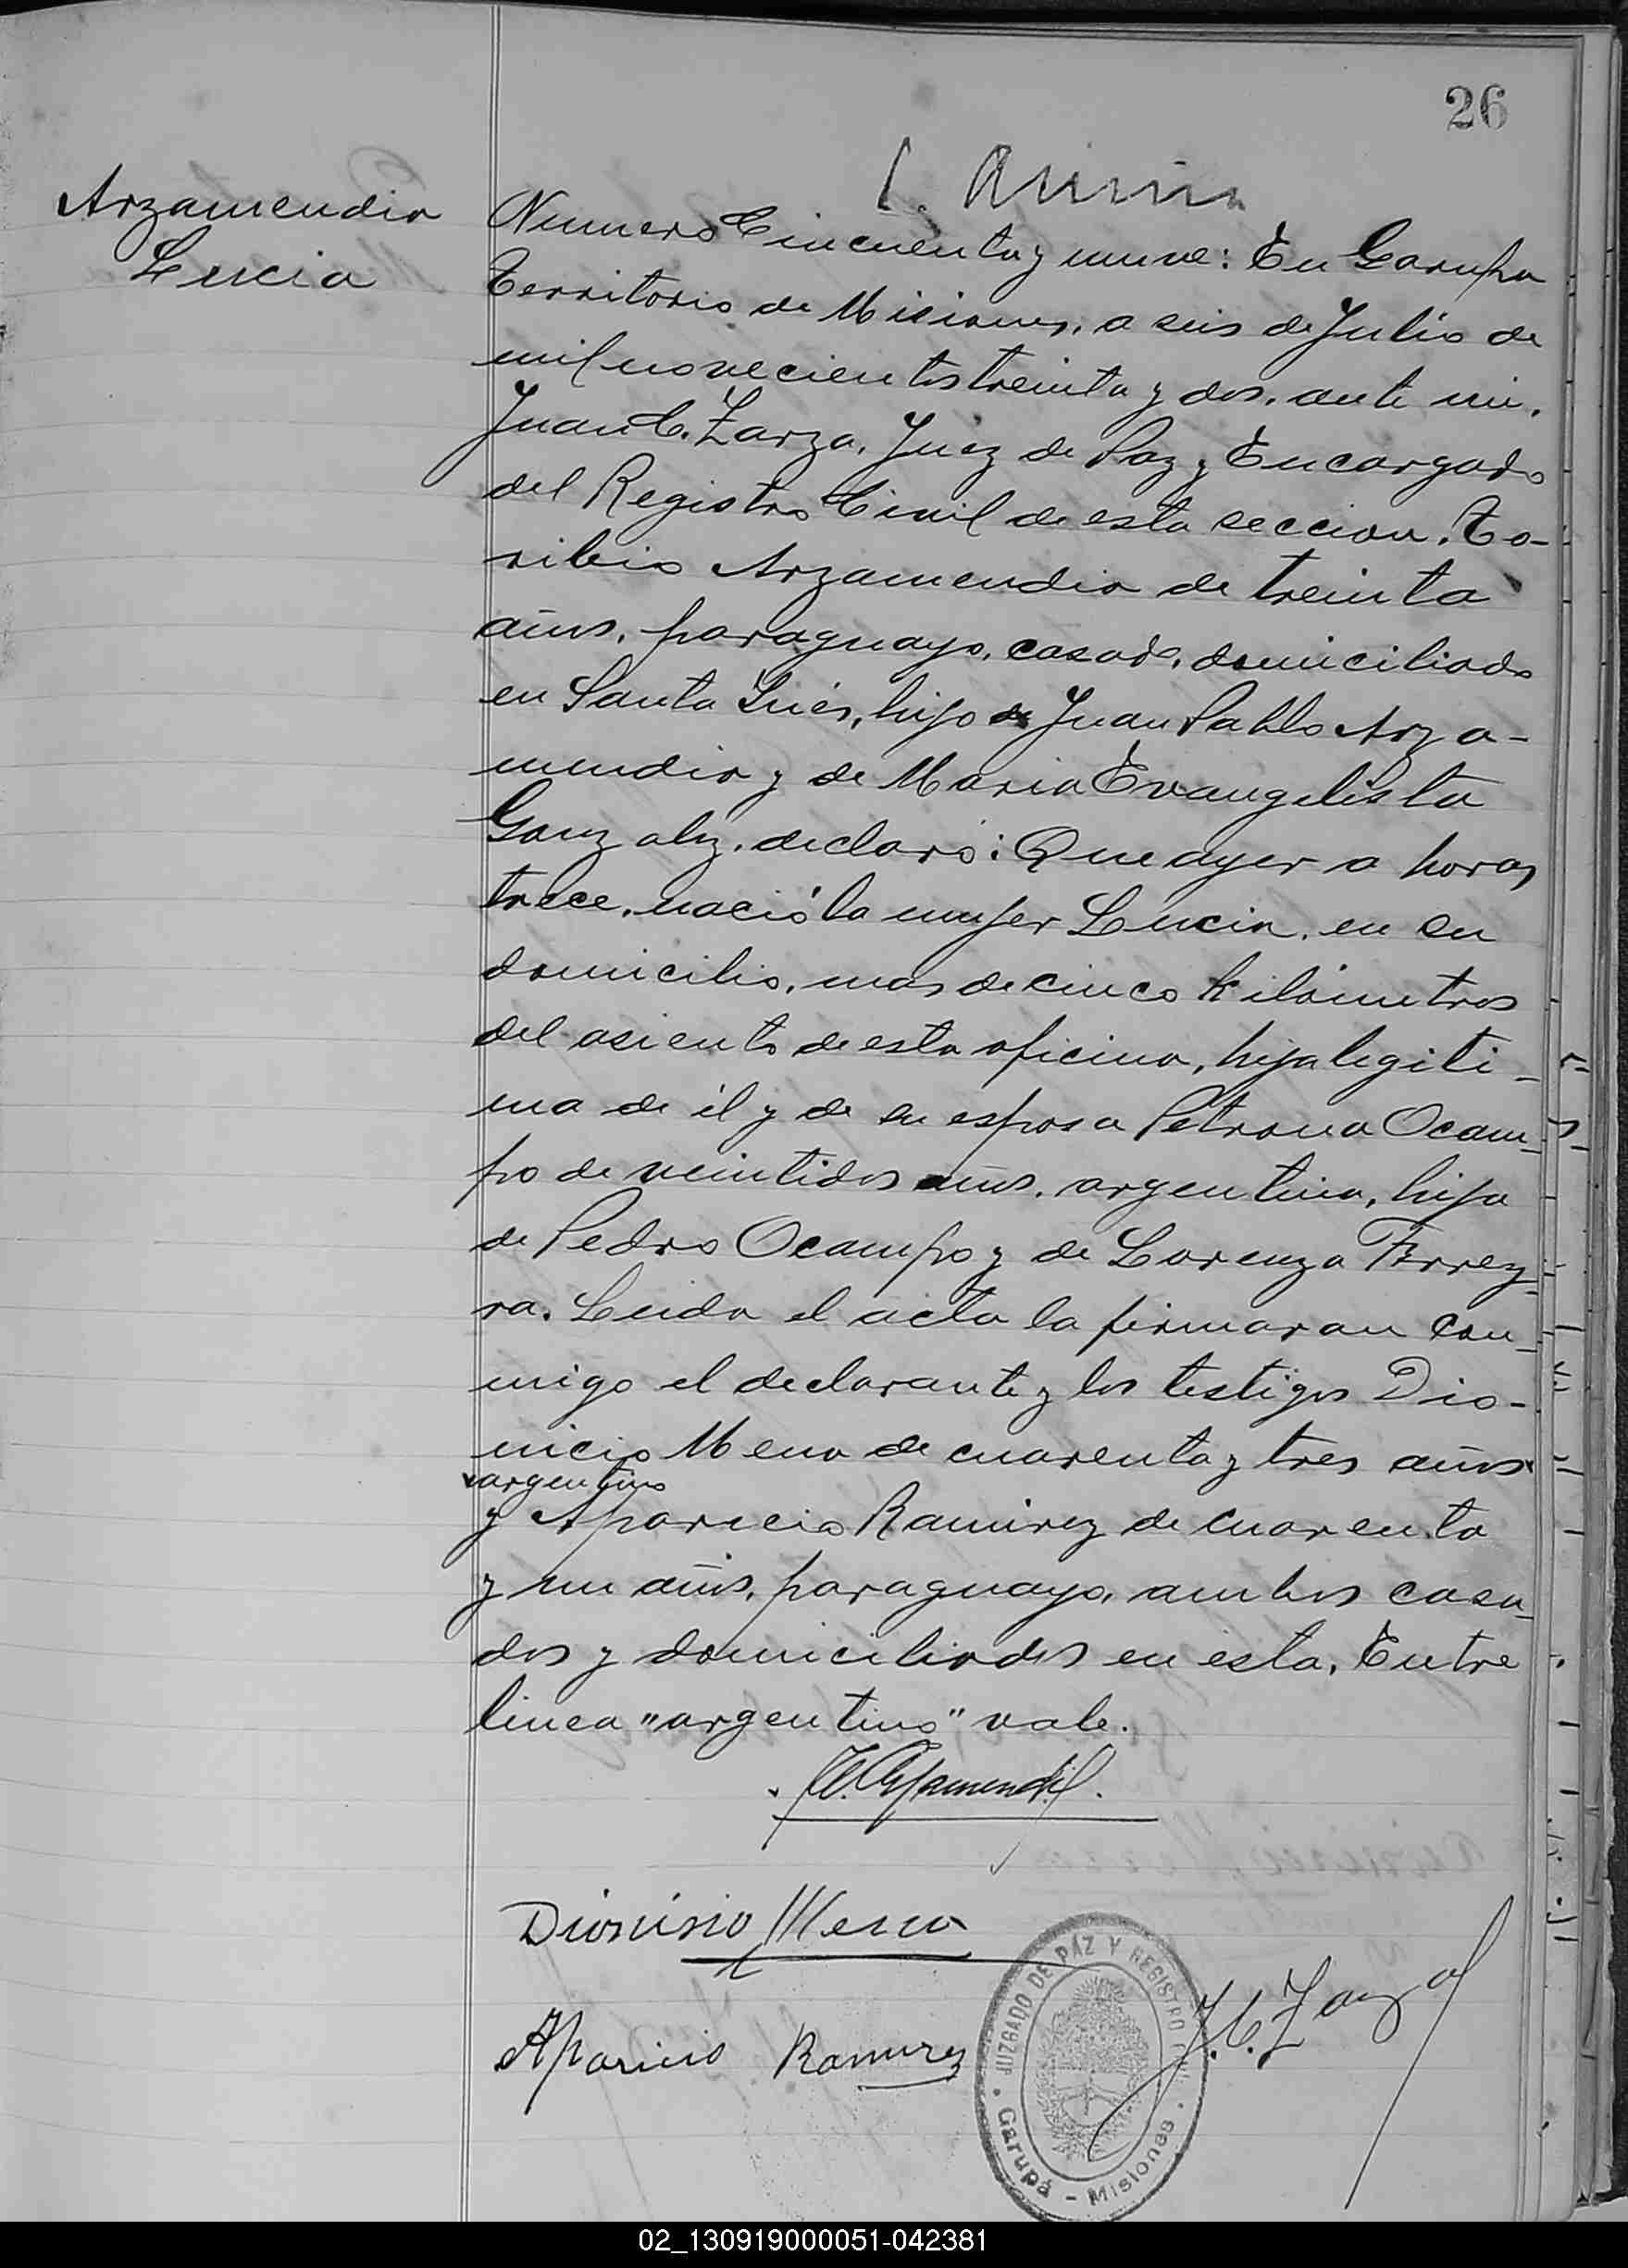 26
Arzamendia
Lucia
Numero Cincuenta y nueve: En Garupa
Territorio de Misiones, a seis de Julio de
mil novecientos treinta y dos, ante mi,
Juan C. Zarza, Juez de Paz y Encargado
del Registro Civil de esta seccion, To-
ribio Arzamendia de treinta
años, paraguayo, casado, domiciliado
en Santa Inés, hijo de Juan Pablo Arza-
mendia y de Maria Evangelista
Gonzalez, declaró: Que ayer a horas
trece, nació la mujer Lucia, en su
domicilio, mas de cinco kilómetros
del asiento de esta oficina, hija legiti-
ma de él y de su esposa Petrona Ocam-
po de veintidos años, argentina, hija
de Pedro Ocampo y de Lorenza Ferrey-
ra. Leida el acta la firmaran con-
migo el declarante y los testigos Dio-
nicio Mena de cuarenta y tres años
argentino
y Aparicio Ramirez de cuarenta
y un años, paraguayo, ambos casa-
dos y domiciliados en esta. Entre
linea "argentino" vale.
T. Arzamendia
Dionisio Mena
Aparicio Ramirez
J. C. Zarza
JUZGADO DE PAZ Y REGISTRO CIVIL
Garupá - Misiones
02_130919000051-042381